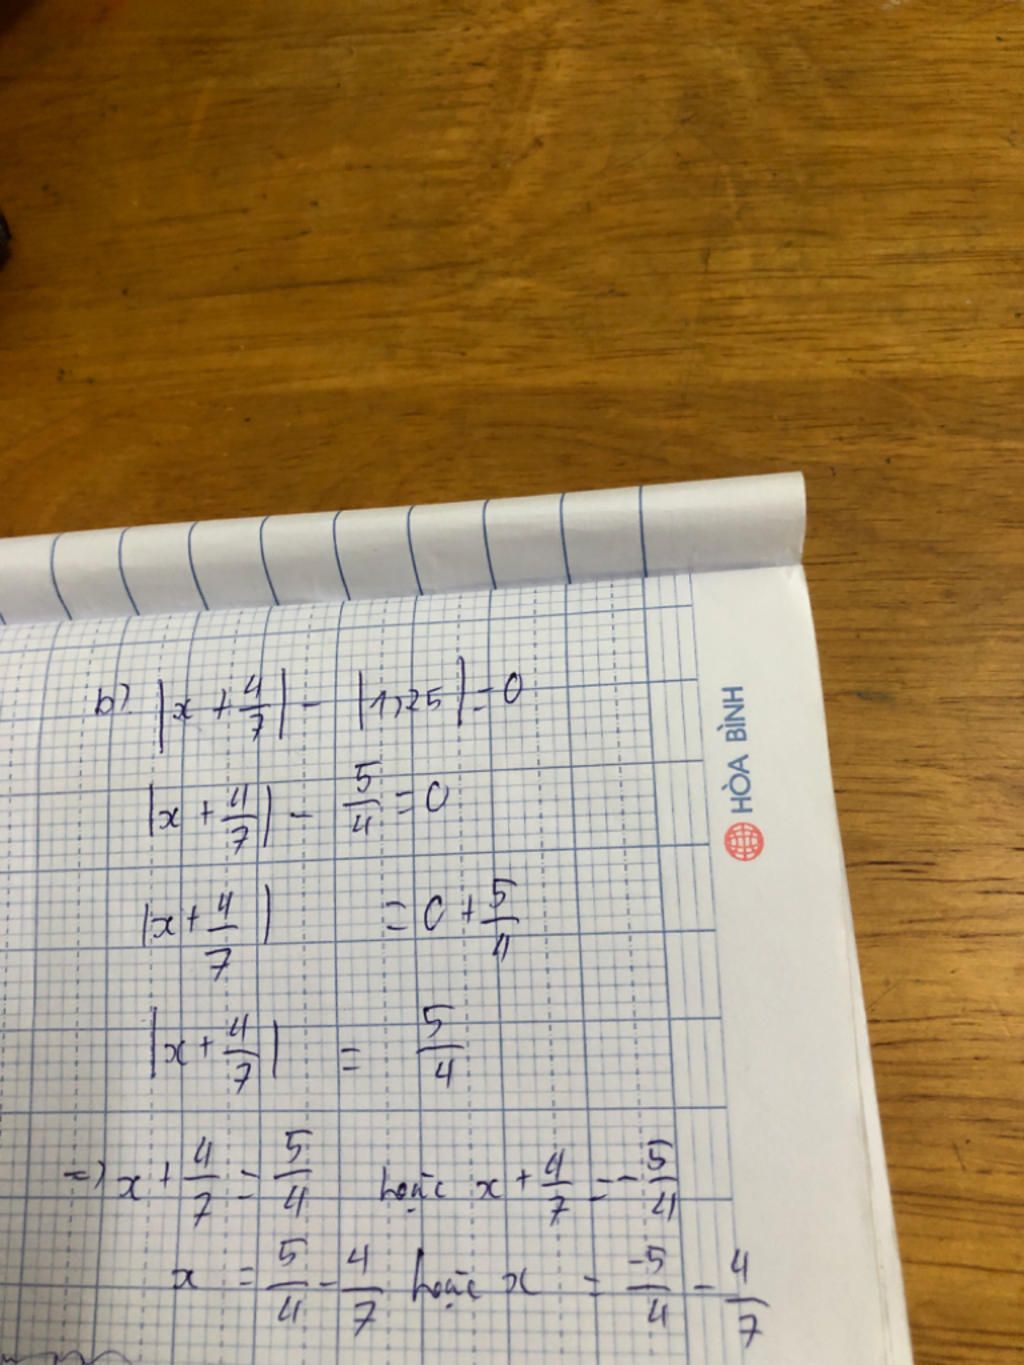 b) |x + 4/7| - |1,25| = 0
|x + 4/7| - 5/4 = 0
|x + 4/7| = 0 + 5/4
|x + 4/7| = 5/4
=) x + 4/7 = 5/4 hoặc x + 4/7 = -5/4
x = 5/4 - 4/7 hoặc x = -5/4 - 4/7
HÒA BÌNH